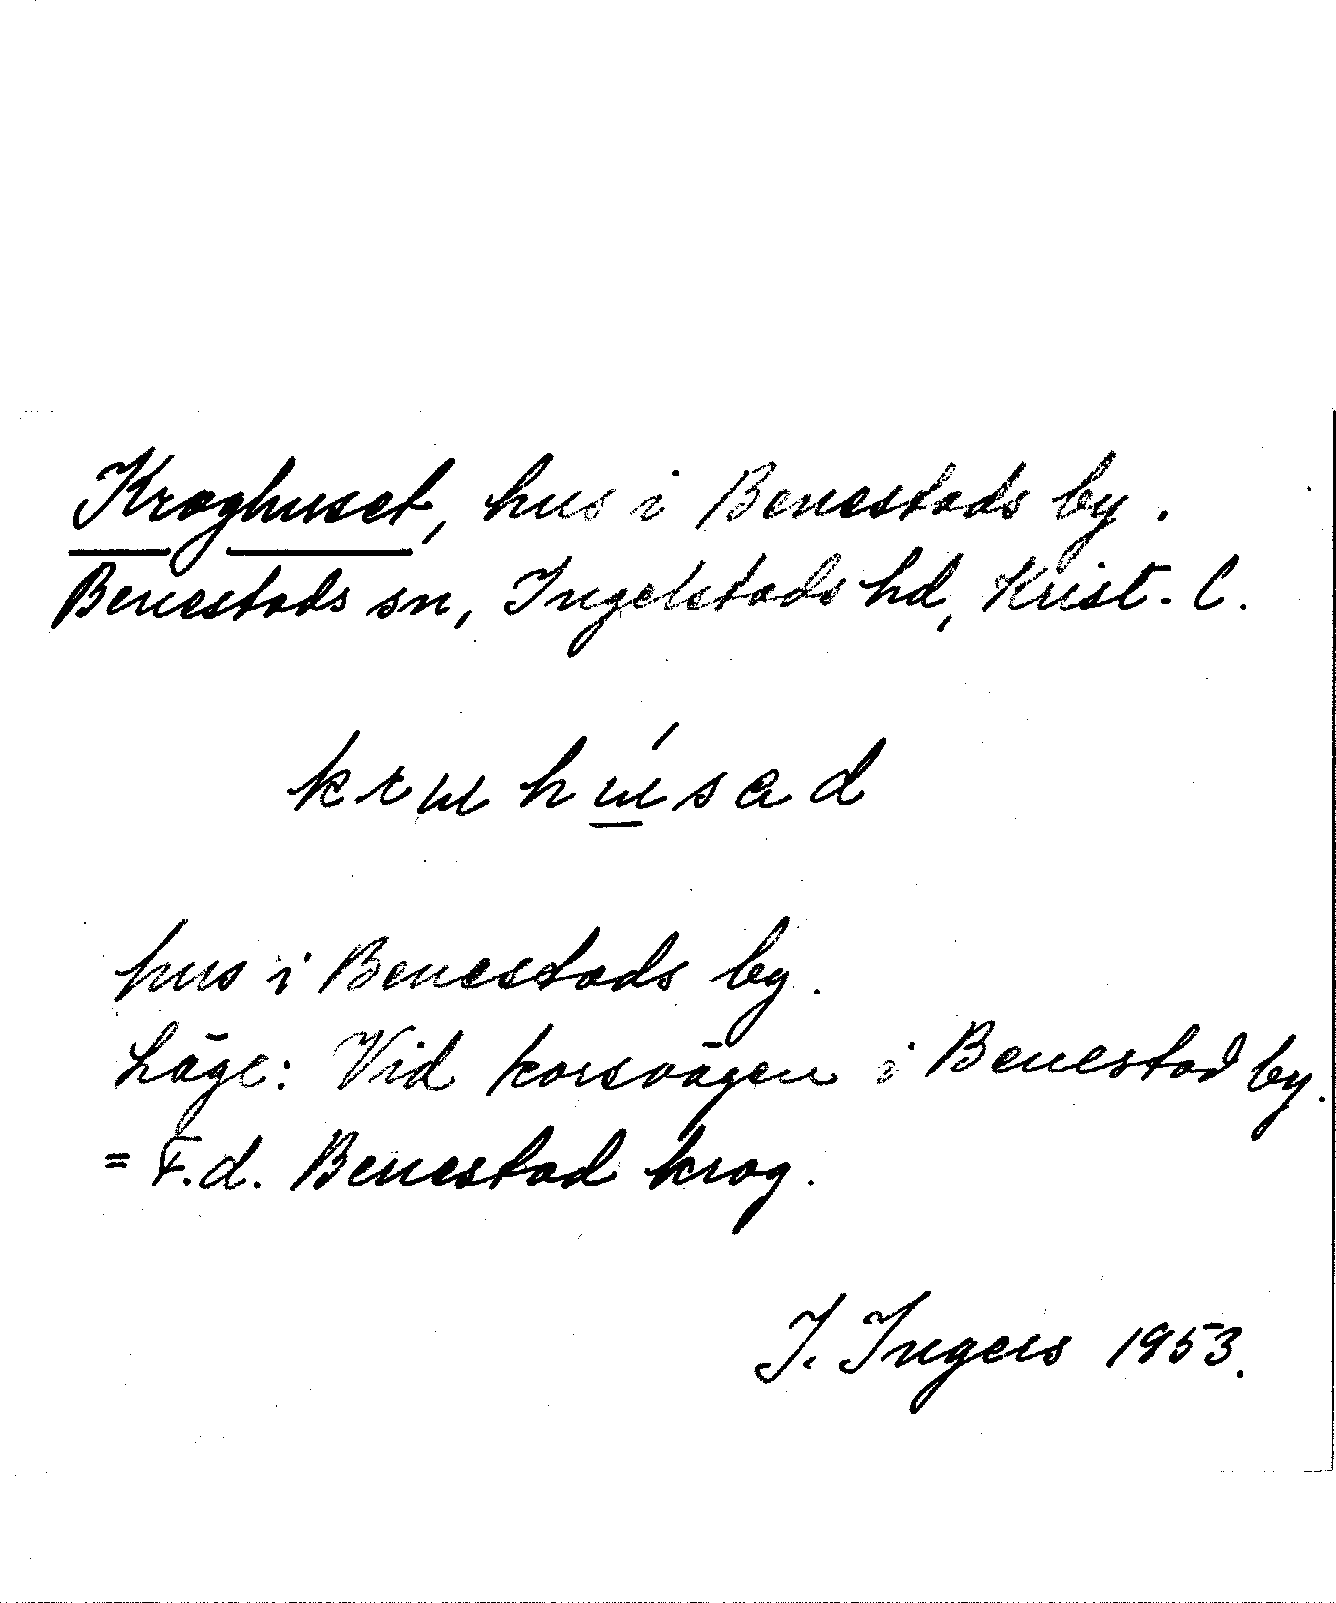 Kroghuset, hus i Benestads by.
Benestads sn, Ingelstads hd, Krist. l.
hus i Benestads by.
Läge: Vid korsvägen i Benestad by.
= F.d. Benestad krog.
I. Ingers 1953.